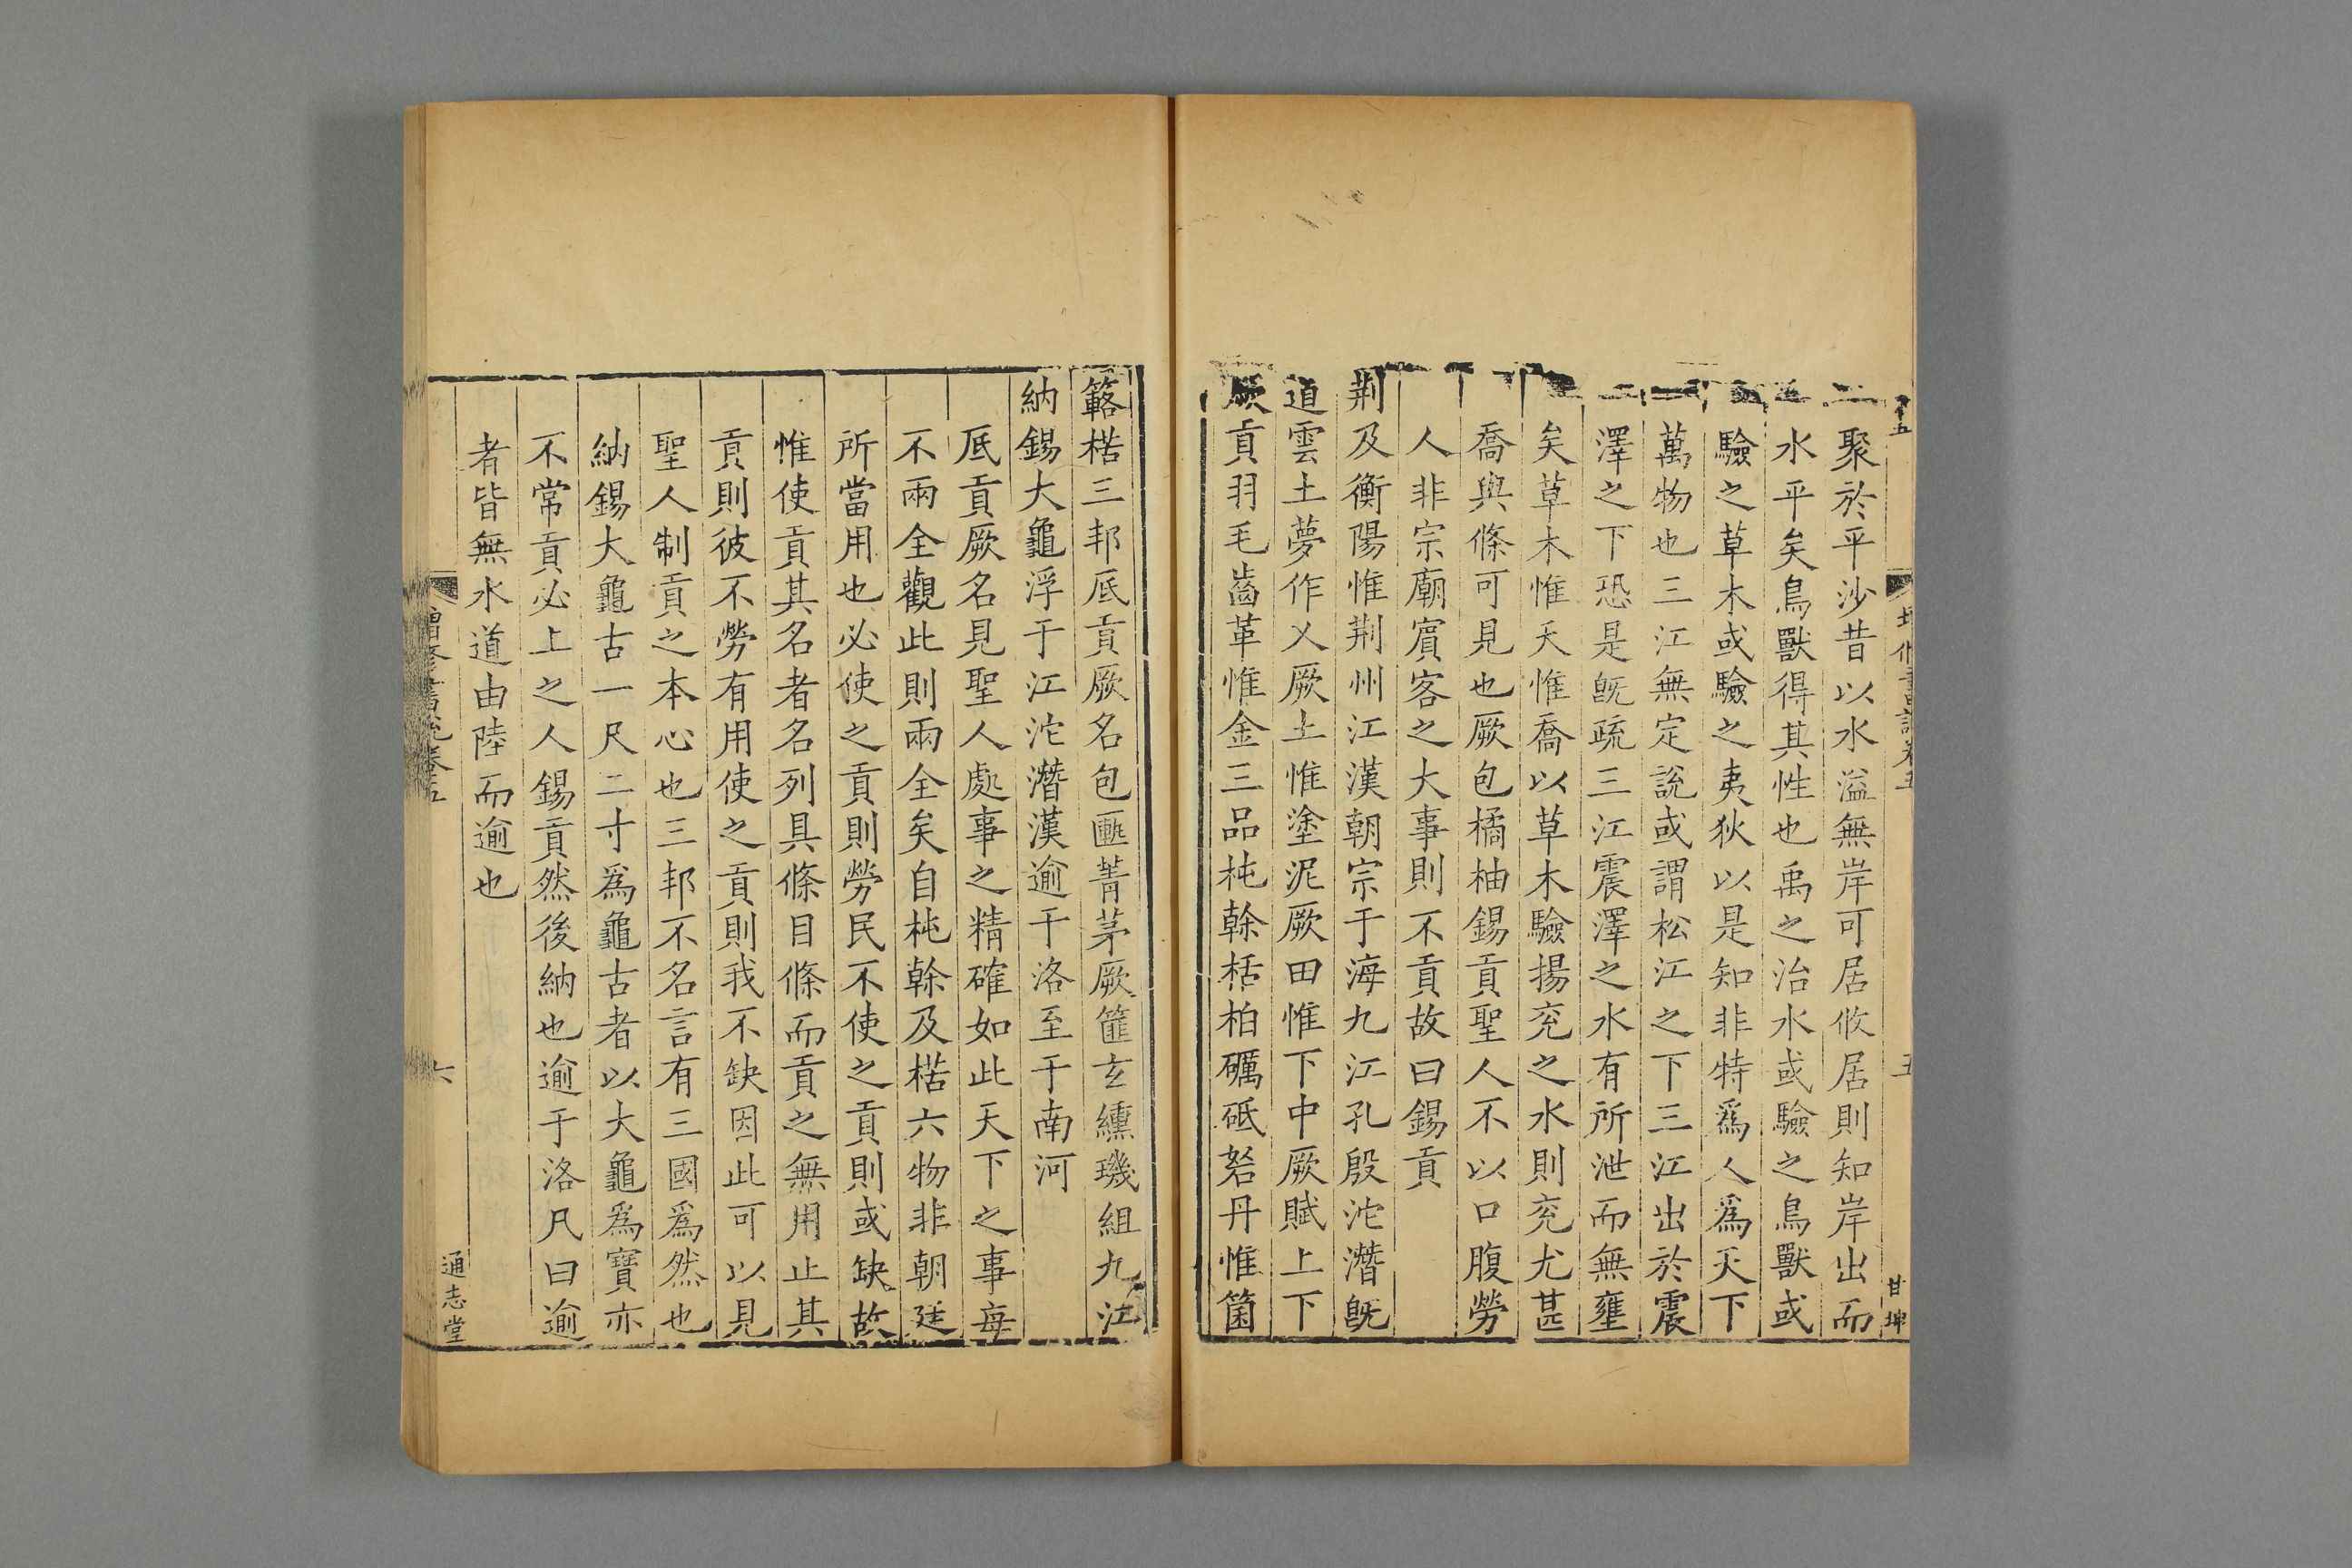 聚於平沙昔以水溢無岸可居攸居則知岸出而
水平矣鳥獸得其性也禹之治水或驗之鳥獸或
驗之草木或驗之夷狄以是知非特爲人爲天下
萬物也三江無定說或謂松江之下三江出於震
澤之下恐是旣疏三江震澤之水有所泄而無壅
矣草木惟夭惟喬以草木驗揚兖之水則兖尤甚
喬與條可見也厥包橘柚錫貢聖人不以口腹勞
人非宗廟賓客之大事則不貢故曰錫貢
荆及衡陽惟荆州江漢朝宗于海九江孔殷沱潛旣
道雲土夢作乂厥土惟塗泥厥田惟下中厥賦上下
厥貢羽毛齒革惟金三品杶榦栝柏礪砥砮丹惟箘
甘坤
簵楛三邦厎貢厥名包匭菁茅厥篚玄纁璣組九江
納錫大龜浮于江沱潛漢逾于洛至于南河
厎貢厥名見聖人處事之精確如此天下之事每
不兩全觀此則兩全矣自杶榦及楛六物非朝廷
所當用也必使之貢則勞民不使之貢則或缺故
惟使貢其名者名列具條目條而貢之無用止其
貢則彼不勞有用使之貢則我不缺因此可以見
聖人制貢之本心也三邦不名言有三國爲然也
納錫大龜古一尺二寸爲龜古者以大龜爲寶亦
不常貢必上之人錫貢然後納也逾于洛凡曰逾
者皆無水道由陸而逾也
六
通志堂